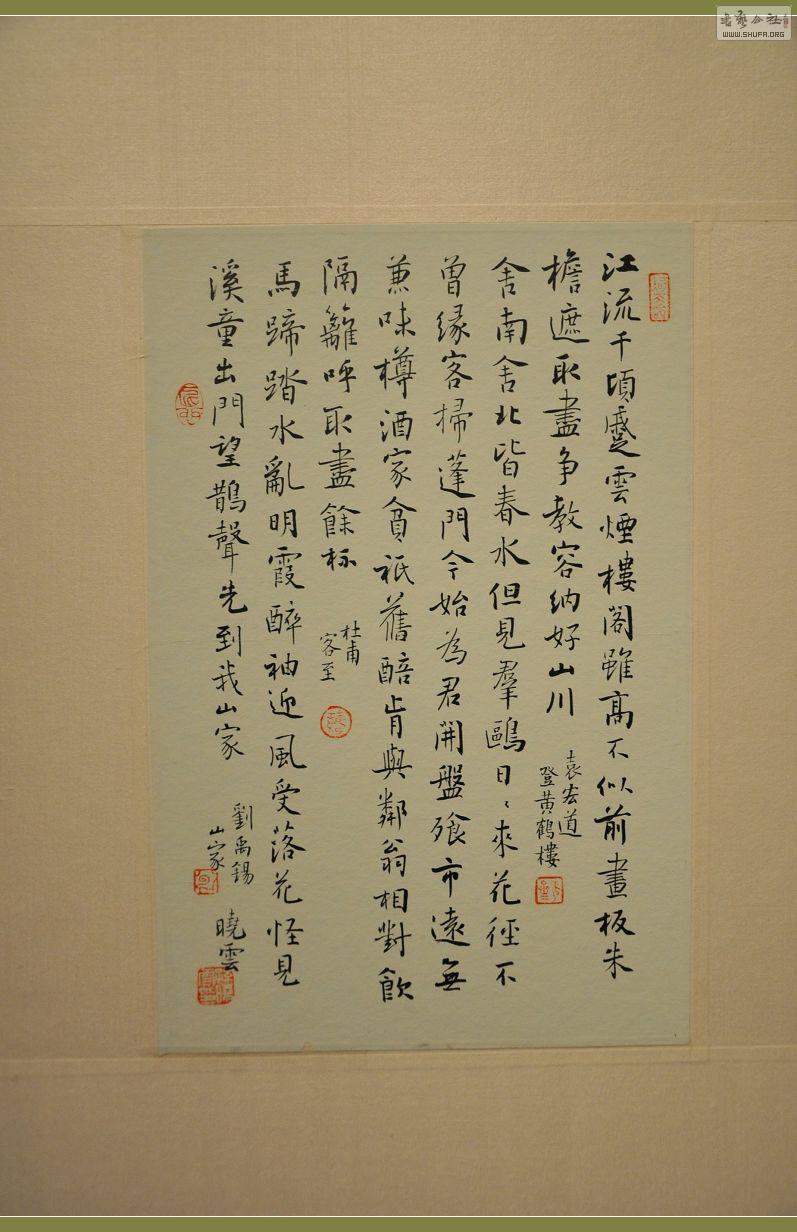 江流千頃蹙雲煙樓閣雖高不似前畫板朱
檐遮取盡争教容纳好山川
袁宏道
登黄鶴樓
舍南舍北皆春水但見羣鷗日〻來花徑不
曾缘客掃蓬門今始為君開盤飱市遠無
兼味樽酒家貧祇舊醅肯與鄰翁相對飲
隔籬呼取盡餘杯
杜甫
客至
馬蹄踏水亂明霞醉袖迎風受落花怪見
溪童出門望鵲聲先到我山家
劉禹錫
山家
曉雲
書藝公社
WWW.SHUFA.ORG